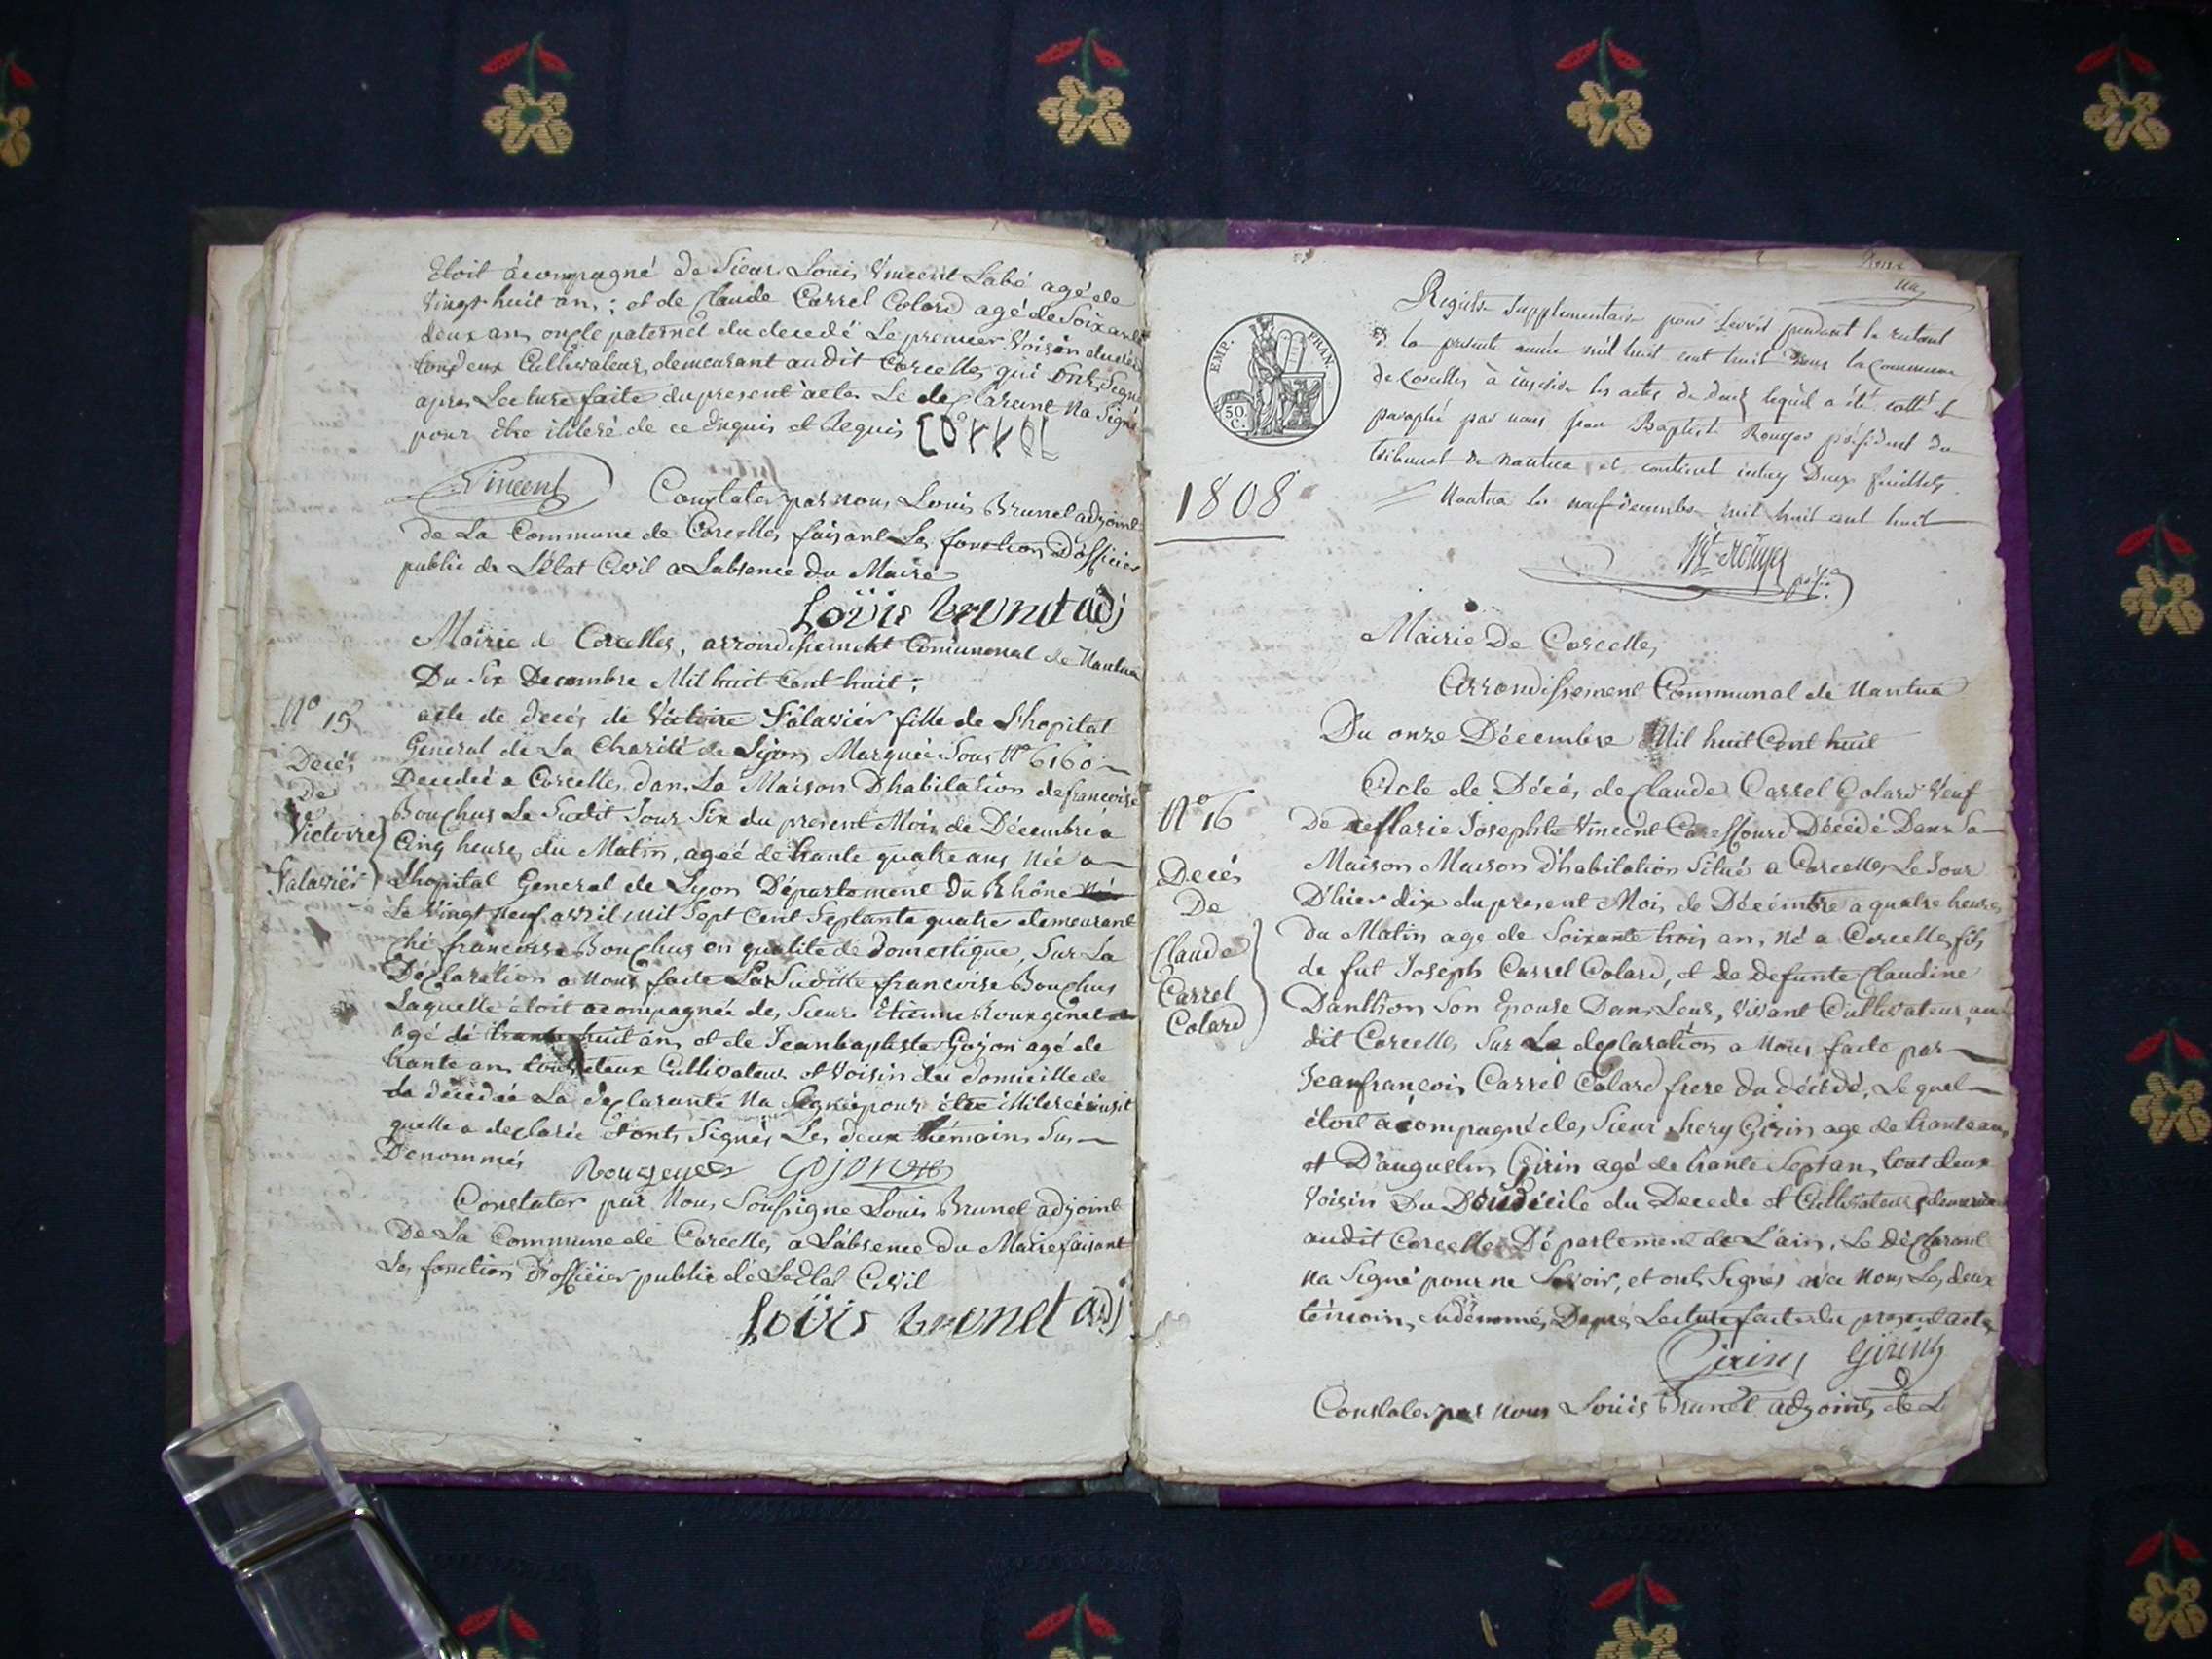 Etoit acompagné de Sieur Louis Vincent Labé agé de
Vingt huit ans ; et de Claude Carrel Colard agé de Soixante
deux ans oncle paternel du decedé Le premier Voisin du
tous deux Cultivateurs demeurant audit Corcelles qui ont Signé
apres Lecture faite du present acte Le declarant na Signé
pour être illiteré de ce Enquis et Requis Correl
Vincent Constater par nous Louis Brunet adjoint
de La Commune de Corcelles faisant Les fonction D'officier
public de L'état Civil a Labsence du Maire
Loüis brunet adj
Mairie de Corcelles, arrondissement Communal de Nantua
Du Six Decembre Mil huit Cent huit ;
N° 15
acte de decés de Victoire Falavier fille de L'hopital
General de La Charité de Lyon Marquée Sous N° 6160
Decés
De
Victoire
Falavier
Decedeé a Corcelles dans La Maison Dhabitation de francoise
Bouchus Le Sudit Jour Six du present Mois de Décembre a
Cinq heures du Matin, ageé de trante quatre ans Née a
Lhopital General de Lyon Département du Rhône
Le Vingt neuf avril mil Sept Cent Septante quatre demeurant
ché francoise Bouchus en qualité de domestique, Sur La
Déclaration a Nous faite Par Suditte francoise Bouchus
Laquelle étoit acompagneé des Sieurs Etienne Rouxgenet
agé de trante huit ans et de Jeanbaptiste Gojon agé de
trante ans tous deux Cultivateurs et Voisin du domicille de
la décédée La declarante Na Signé pour être illiterée
quelle a declarée et ont Signés Les deux témoins Sus
Denommés
Rougenet Gojon
Constater par Nous Soussigne Louis Brunet adjoint
De La Commune de Corcelles a Labsence du Maire faisant
Les fonction D'officier public de L'état Civil
Loüis brunet adj
EMP. FRAN.
50 C.
1808
Registre Supplementaire pour Servir pendant le restant
de la presente année mil huit cent huit dans la Commune
de Corcelles à inscrire les actes de decés lequel a été cotté et
paraphé par nous Jean Baptiste Rouyer président du
tribunal de nantua et contient Deux feuillets
Nantua le neuf decembre mil huit cent huit
Rouyer
Mairie De Corcelles
Arrondissement Communal de Nantua
Du onze Décembre Mil huit Cent huit
N° 16
Acte de Décés de Claude Carrel Colard Veuf
De Marie Josephte Vincent Décédé Dans Sa
Decés
De
Claude
Carrel
Colard
Maison Maison d'habitation Situés a Corcelles Le Jour
D'hier dix du present Mois de Décémbre a quatre heures
du Matin age de Soixante trois ans, Né a Corcelles fils
de fut Joseph Carrel Colard, et De Defunte Claudine
Danthon Son Epouse Dans Leurs Vivant Cultivateurs au
dit Corcelles Sur La declaration a Nous faite par
Jeanfrançois Carrel Colard frere du décédé, Lequel
étoit acompagné des Sieur hery Girin age de trante ans
et D'augustin Girin agé de trante Sept ans tout deux
Voisin Du Domicile du Decede et Cultivateurs demeurant
audit Corcelles Département de L'ain, Le Déclarant
na Signé pour ne Savoir, et ont Signés avec Nous Les deux
témoins Sudénomés, Daprés Lecture faite du present acte
Girin Girin
Constater par nous Loüis Brunet adjoint de L